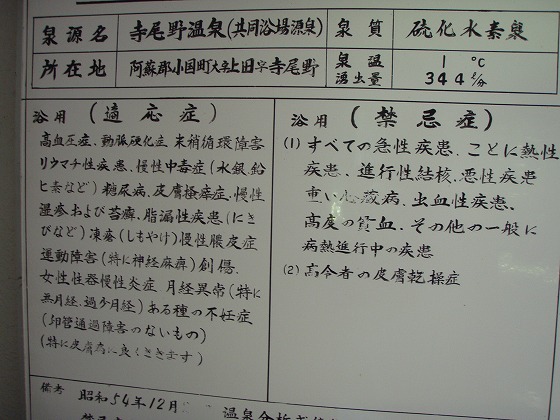 泉源名 寺尾野温泉(共同浴場源泉) 泉質 硫化水素泉
所在地 阿蘇郡小国町大字上田字寺尾野 泉温 1 ℃
湧出量 344ℓ/分
浴用 (適応症)
高血圧症、動脈硬化症 末梢循環障害
リウマチ性疾患、慢性中毒症(水銀、鉛
ヒ素など)糖尿病、皮膚掻痒症、慢性
湿疹および苔癬、脂漏性疾患(にき
びなど)凍瘡(しもやけ)慢性膿皮症
運動障害(特に神経麻痺)創傷、
女性性器慢性炎症 月経異常(特に
無月経、過少月経)ある種の不妊症
(卵管通過障害のないもの)
(特に皮膚病に良くききます)
浴用 (禁忌症)
(1) すべての急性疾患、ことに熱性
疾患、進行性結核、悪性疾患
重い心臓病、出血性疾患、
高度の貧血、その他の一般に
病熱進行中の疾患
(2) 高令者の皮膚乾操症
備考 昭和54年12月